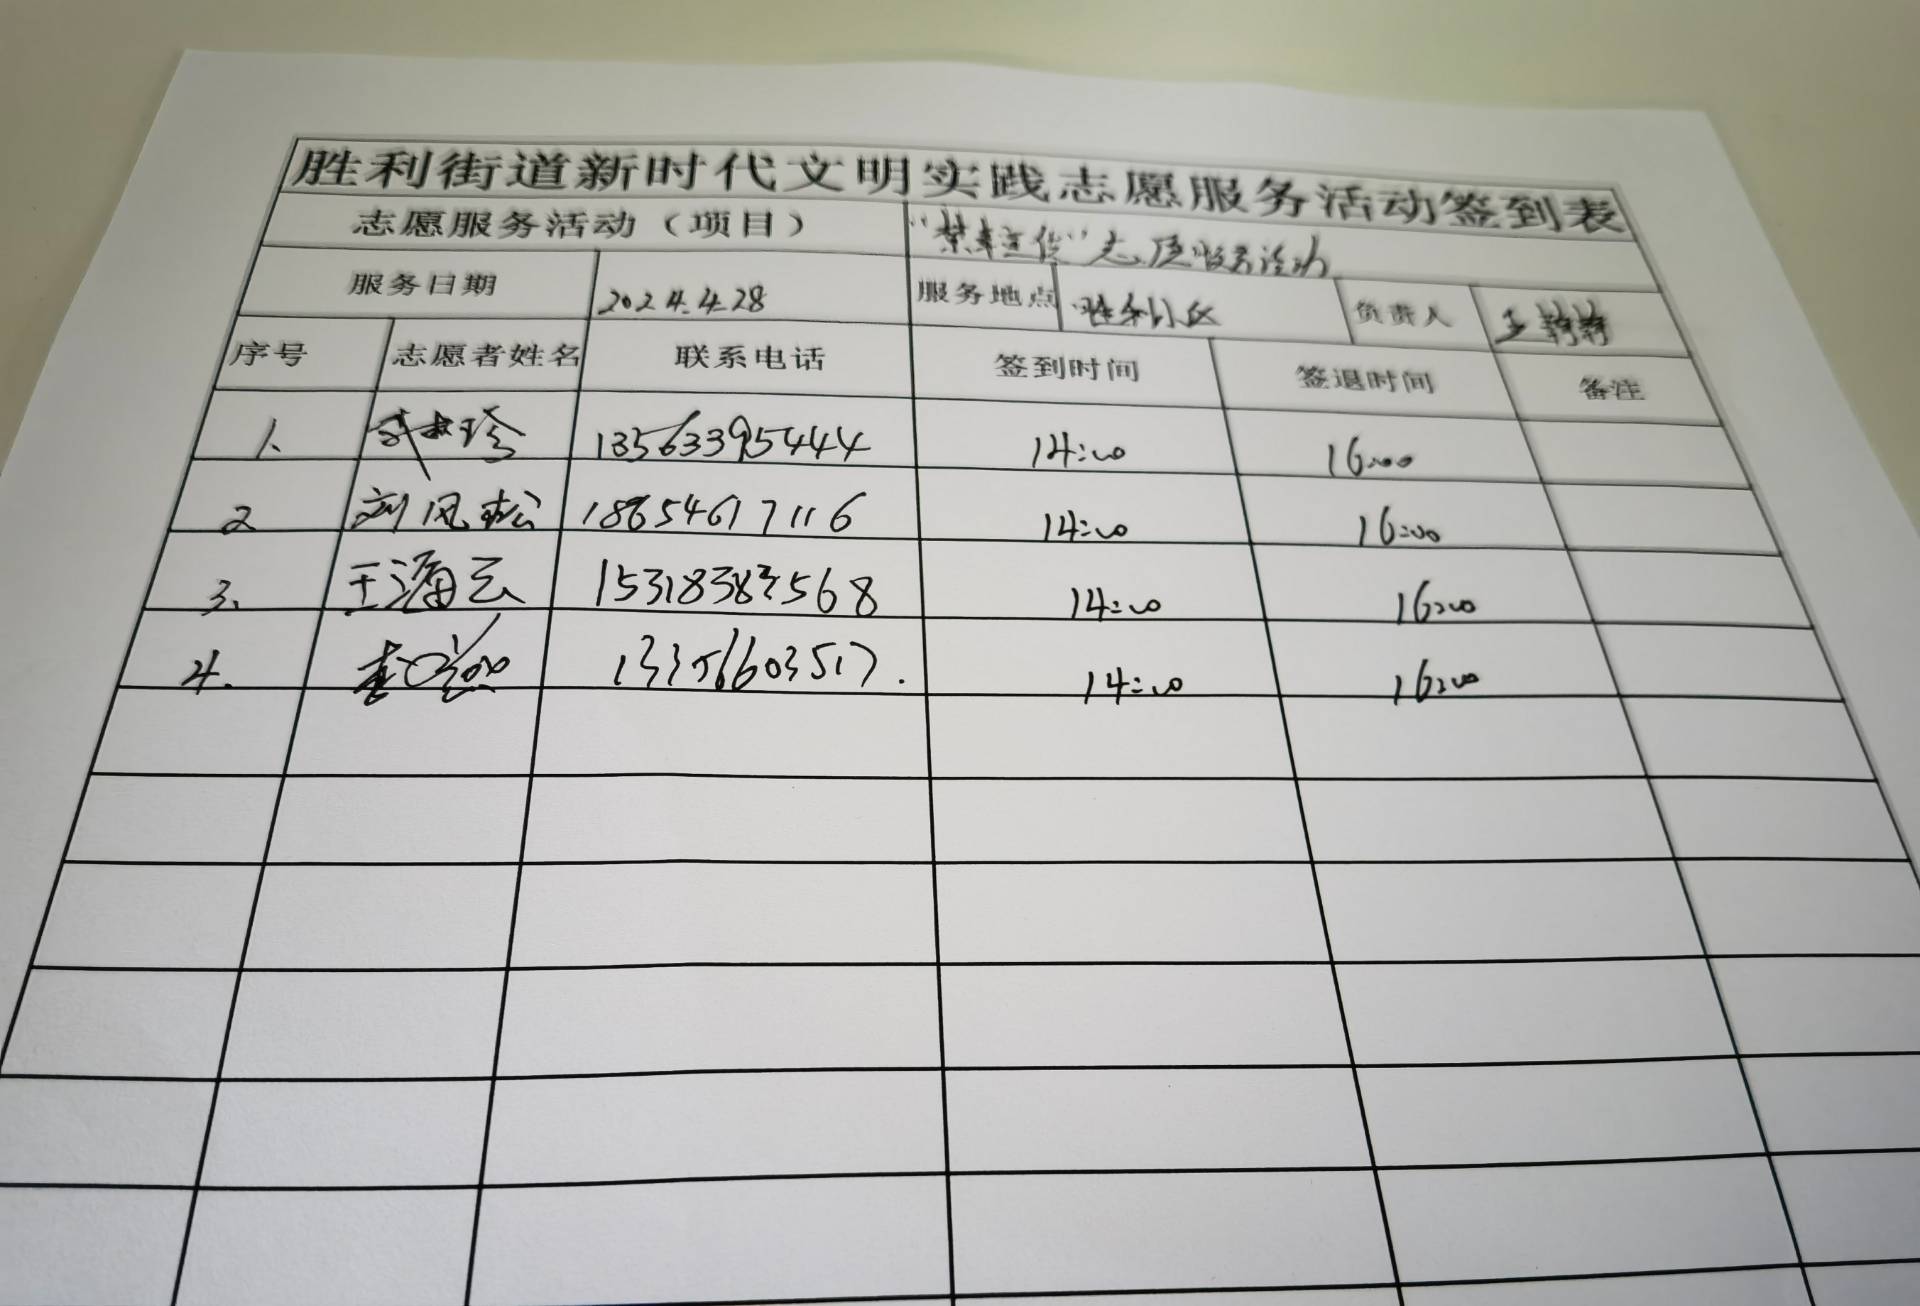 胜利街道新时代文明实践志愿服务活动签到表
志愿服务活动（项目） "禁毒宣传"志愿服务活动
服务日期 2024.4.28 服务地点 胜利社区 负责人 王
序号 志愿者姓名 联系电话 签到时间 签退时间 备注
1. 13563395444 14:00 16:00
2 刘凤松 18654617116 14:00 16:00
3. 王海云 15318383568 14:00 16:00
4. 李 13356603517. 14:00 16:00